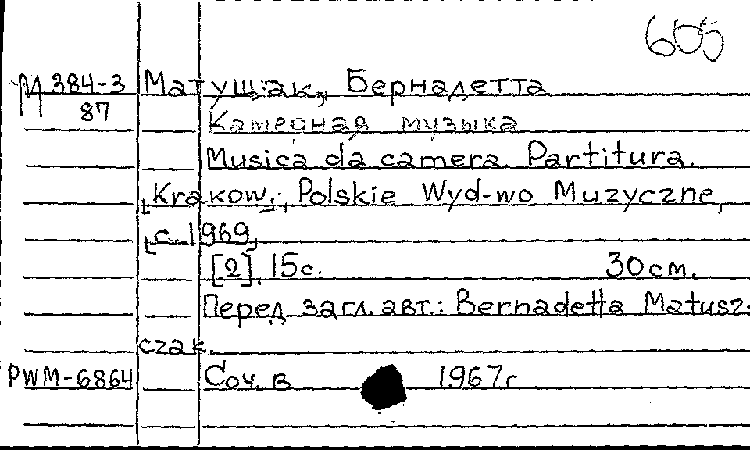 605
М 384-3 Матущак, Бернадетта
87
Камерная музыка
Musica da camera. Partitura.
[Krakow], Polskie Wyd-wo Muzyczne,
[c. 1969]
[2], 15 с. 30 см.
Перед загл. авт.: Bernadetta Matusz-
czak.
PWM-6864 Соч. в 1967г